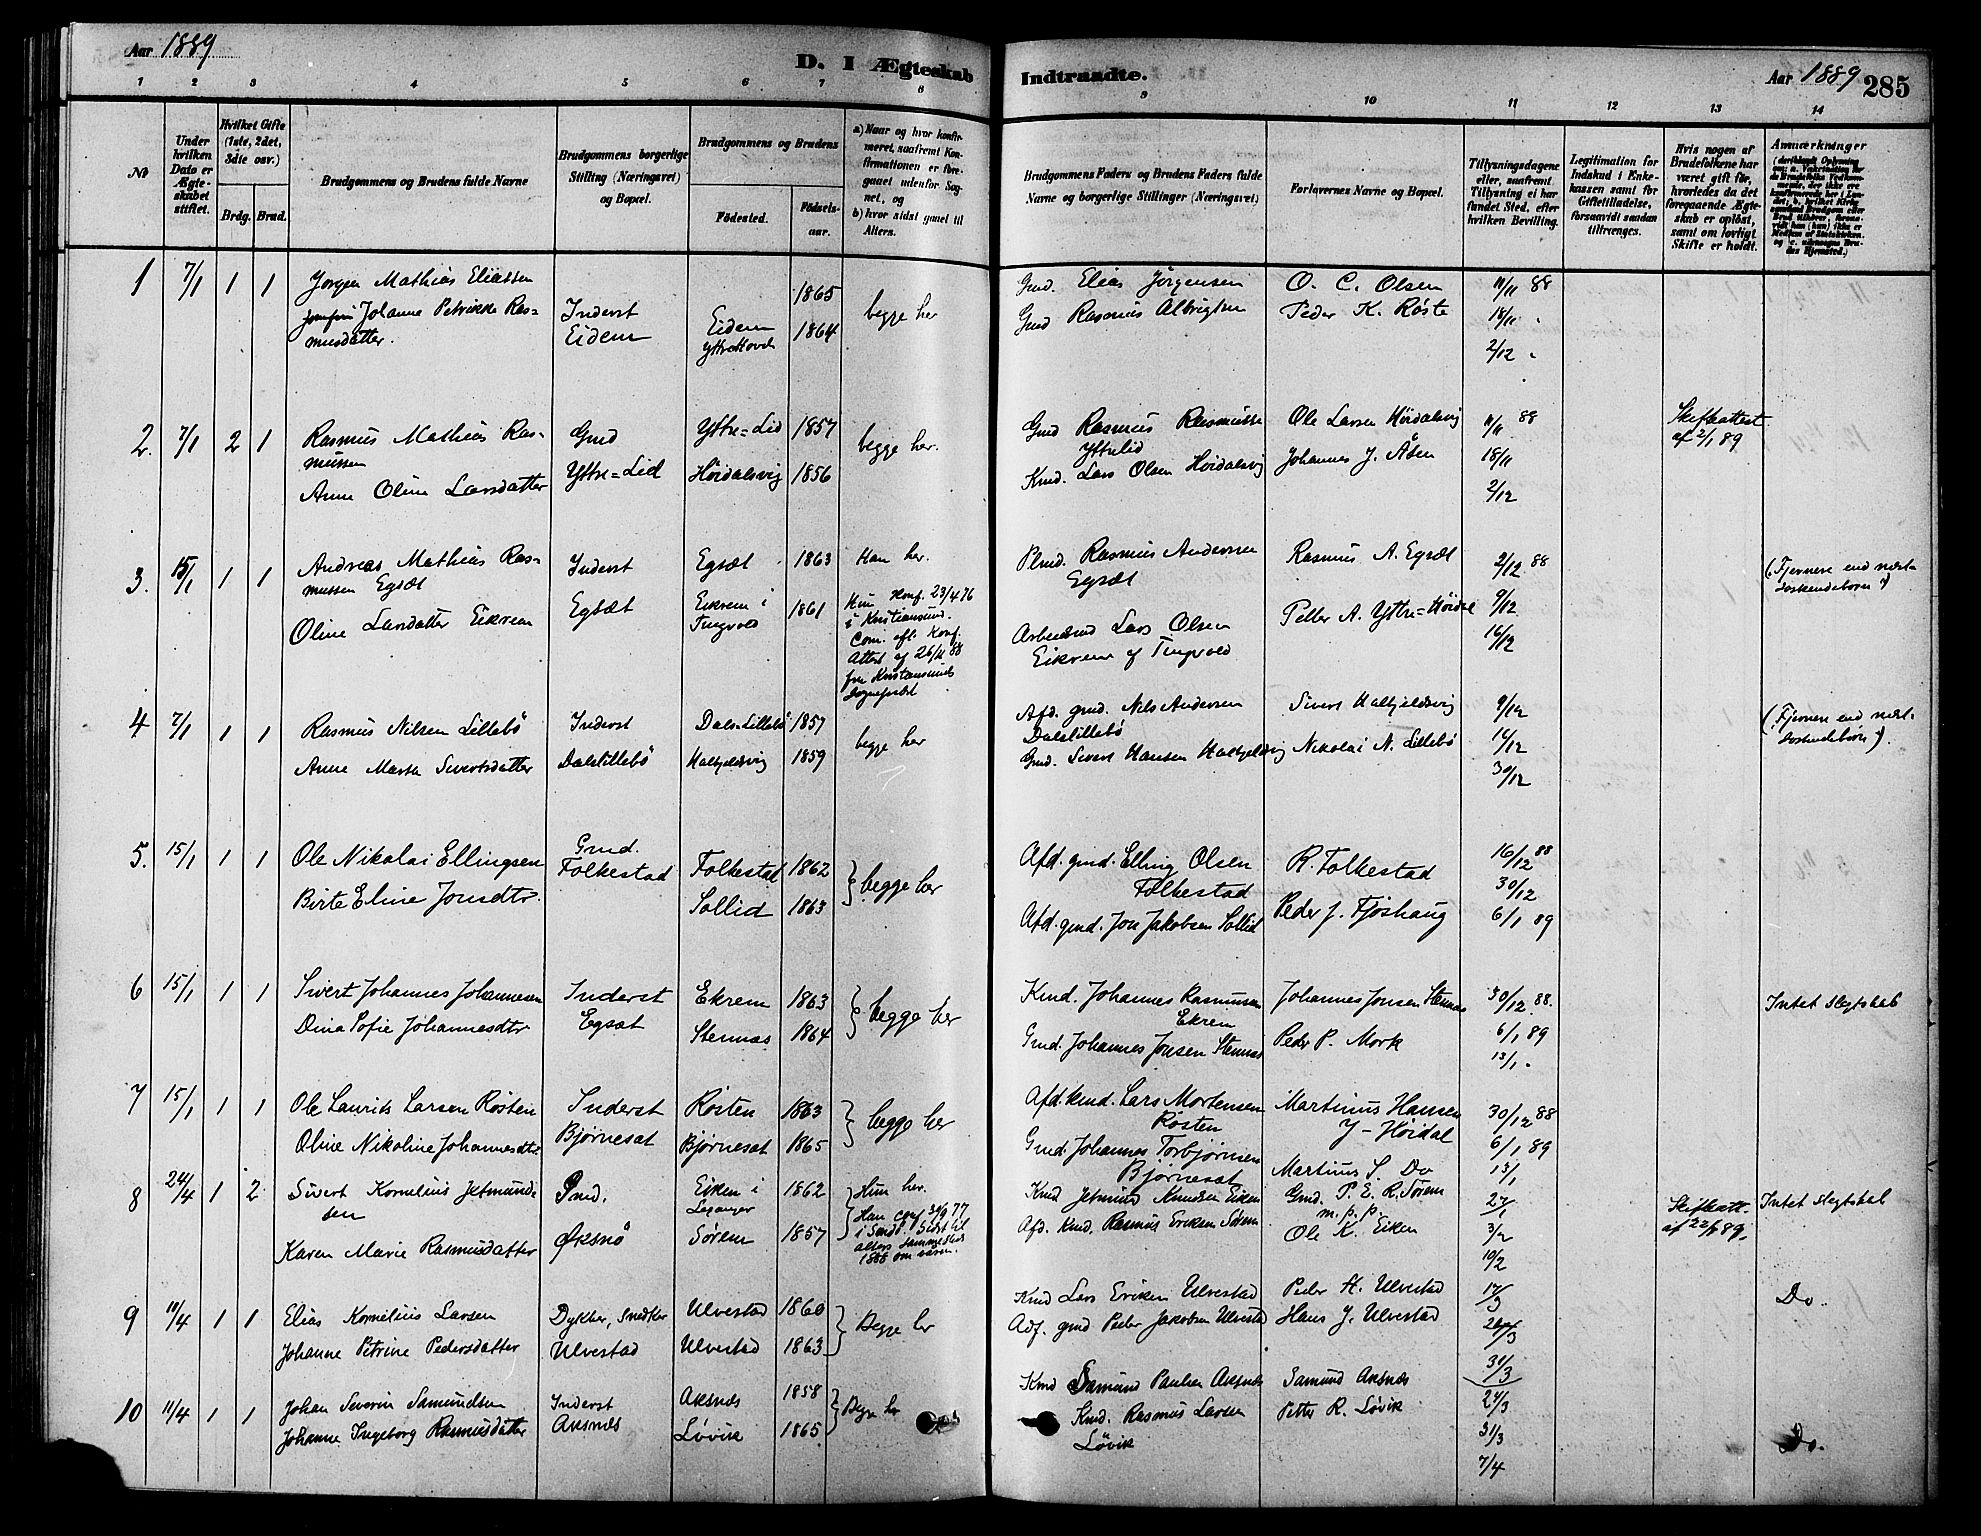 Aar 1889
D. I Ægteskab Indtraadte.
Aar 1889 285
1 2 3 4 5 6 7 8 9 10 11 12 13 14
No
Under hvilken Dato er Ægteskabet stiftet.
Hvilket Gifte (1ste, 2det, 3die osv.)
Brdg. Brud.
Brudgommens og Brudens fulde Navne
Brudgommens borgerlige Stilling (Næringsvei) og Bopæl.
Brudgommens og Brudens
Fødested. Fødselsaar.
a) Naar og hvor konfirmeret, saafremt Konfirmationen er foregaaet udenfor Sognet, og
b) hvor sidst gaaet til Alters.
Brudgommens Faders og Brudens Faders fulde Navne og borgerlige Stillinger (Næringsvei)
Forlovernes Navne og Bopæl.
Tillysningsdagene eller, saafremt Tillysning ei har fundet Sted, efter hvilken Bevilling.
Legitimation for Indskud i Enkekassen samt for Giftetilladelse, forsaavidt saadan tiltrænges.
Hvis nogen af Brudefolkene har været gift før, hvorledes da det foregaaende Ægteskab er opløst, samt om lovligt Skifte er holdt.
Anmærkninger
1 7/1 1 1 Jørgen Mathias Eliassen 1865 begge her Gmd. Elias Jørgensen O. C. Olsen 11/11 88
Johanne Petrikke Ras= Inderst Eidem 1864 Gmd Rasmus Albrigtsen Peder K. Røste 18/11
musdatter. Eidem Yttre Hovde 2/12
2. 7/1 2 1 Rasmus Mathias Ras= Gmd Yttre=Lid 1857 begge her. Gmd Rasmus Rasmusse Ole Larsen Höidalsvig 11/11 88 Skifteattest
mussen Yttrelid af 2/1 89
Anne Oline Larsdatter Yttre=Lid Höidalsvig 1856 Kmd. Lars Olsen Höidalsvig Johannes J. Åsen 18/11
2/12
3. 15/1 1 1 Andreas Mathias Ras= Inderst Egsæt 1863 Han her. Plmd. Rasmus Andersen Rasmus A. Egsæt 2/12 88 (Fjernere end næst-
mussen Egsæt Egsæt söskendebörn)
Oline Larsdatter Eikrem Egsæt Eikrem i 1861 Hun Konf. 23/4 76 Petter A. Yttre=Höidal 9/12
Tingvold i Kristiansund. Lars Olsen 16/12
Com. eft. Konf. Eikrem af Tingvold
Attest af 26/11 88
fra Kristiansunds
Sognepræst
4 7/1 1 1 Rasmus Nilsen Lillebö Inderst Dals-Lillebö 1857 begge her Afd. gmd. Nils Andersen Sivert Halkjeldsvig 9/12 (Fjernere end næst-
Dalslillebö söskendebörn).
Anne Marta Sivertsdatter Dalslillebö Halkjeldsvig 1859 Gmd. Sivert Hansen Halkjeldsvig Nikolai N. Lillebö 16/12
30/12
5. 15/1 1 1 Ole Nikolai Ellingsen Gmd. Folkestad Folkestad 1862 begge her Afd. gmd. Elling Olsen R. Folkestad 16/12 88
Folkestad 30/12
Birte Eline Jonsdtr. Sollid 1863 Afd. gmd. Jon Jakobsen Sollid Peder J. Fjöshaug 6/1 89
6 15/1 1 1 Sivert Johannes Johannesen Inderst Ekrem 1863 begge her Kmd. Johannes Rasmusen Johannes Jonsen Stennæs 30/12 88. Intet slegtskab
Ekrem
Dina Sofie Johannesdtr Egsæt Stennæs 1864 Gmd. Johannes Jonsen Stennæs Peder P. Mork 6/1 89
13/1
7 15/1 1 1 Ole Laurits Larsen Røsten Inderst Røsten 1863 begge her Afd. kmd. Lars Mortensen Martinus Hansen 30/12 88
Røsten Y-Höidal
Oline Nikoline Johannesdtr. Bjørneset Bjørneset 1865 Gmd. Johannes Torbjørnsen 6/1 89
Bjørneset Martinus S. Do 13/1
8 24/4 1 2 Sivert Kornelius Jetmund= Eiken i 1862 Hun her. Kmd Jetmund Knudsen Eiken Gmd. P. E. R. Sørem 27/1 Skifteatt. Intet slegtskab
sen m.p.p. af 22/1 89.
Karen Marie Rasmusdatter Øksnö Sørem 1857 Afd. Kmd. Rasmus Eriksen Sørem Ole K. Eiken 3/2
10/2
9 10/4 1 1 Elias Kornelius Larsen Dykker, Snedker Ulvestad 1860 Begge her Kmd Lars Eriksen Ulvestad Peder H. Ulvestad 17/3 Do.
Johanne Petrine Pedersdatter Ulvestad Ulvestad 1863 Afd. gmd Peder Jakobsen Ulvestad Hans J. Ulvestad 24/3
31/3
10 11/4 1 1 Johan Severin Samundsen Inderst Aksnæs 1858 Begge her Kmd Samund Paulsen Aksnæs Samund Aksnæs 24/3
Johanne Ingeborg Rasmusdatter Aksnæs Løvik 1865 Kmd. Rasmus Larsen Petter R. Løvik 31/3 Do.
Løvik 7/4